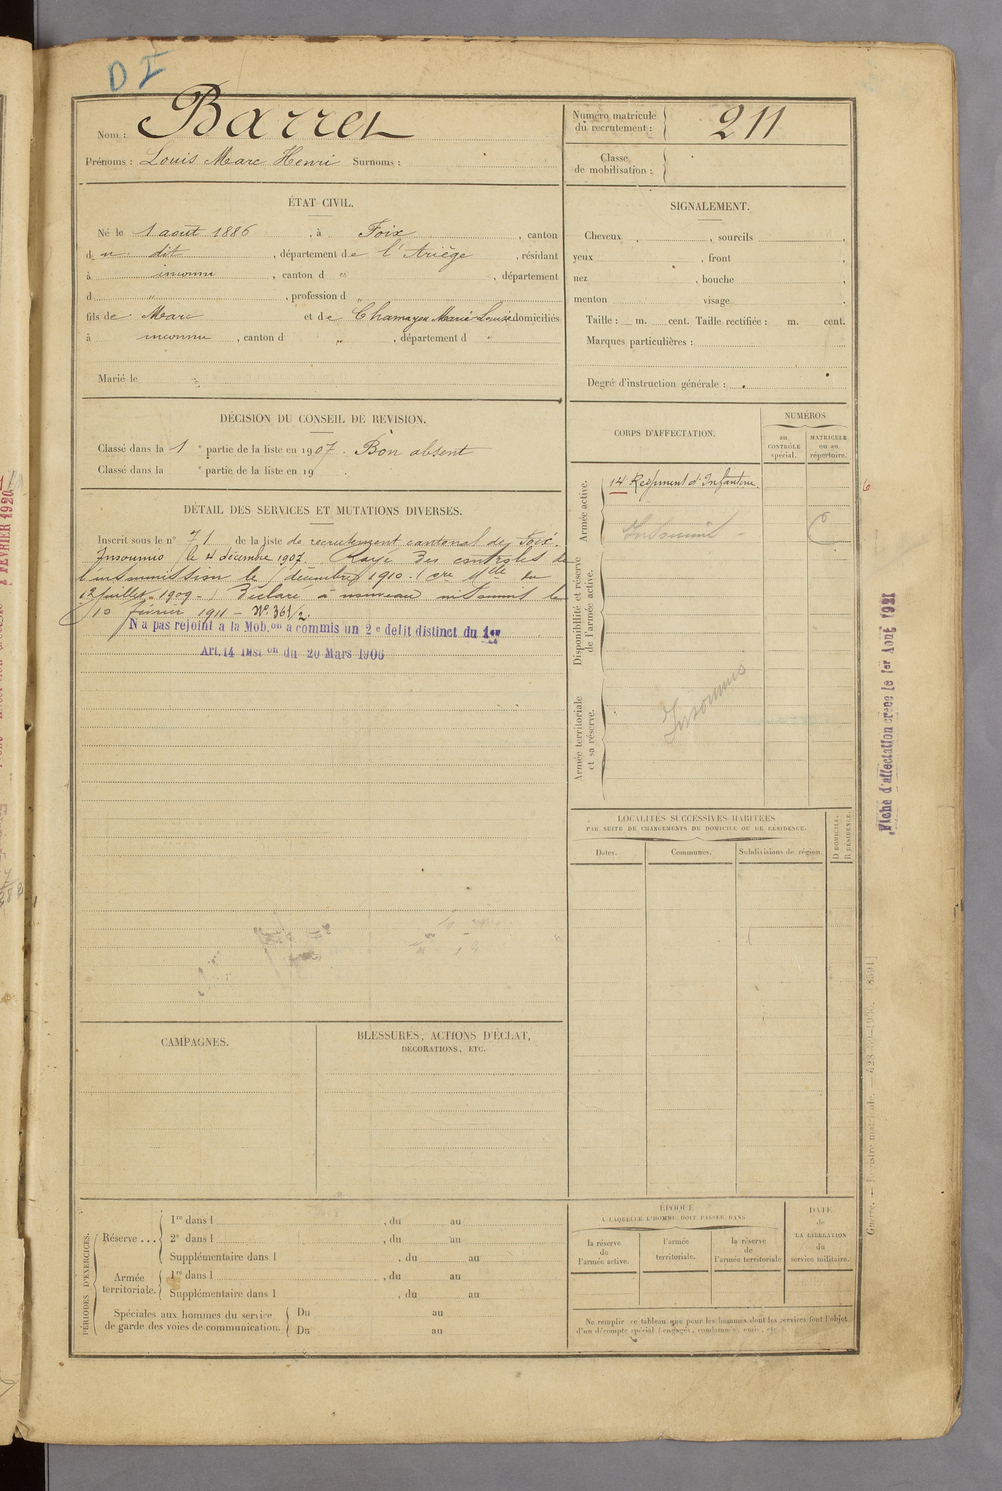 D I
Nom : Barrel
Prénoms : Louis Marc Henri Surnoms :
Numéro matricule
du recrutement : 211
Classe
de mobilisation :
ÉTAT CIVIL.
Né le 1 août 1886 , à Foix , canton
du dit , département de l'Ariège , résidant
à inconnu , canton d " , département
d " , profession d "
fils de Marc et de Chamayou Marie Louise domiciliés
à inconnu , canton d " , département d "
Marié le
SIGNALEMENT.
Cheveux , sourcils ,
yeux , front ,
nez , bouche ,
menton visage .
Taille : m. cent. Taille rectifiée : m. cent.
Marques particulières :
Degré d'instruction générale :
DÉCISION DU CONSEIL DE REVISION.
Classé dans la 1 e partie de la liste en 1907. Bon absent
Classé dans la e partie de la liste en 19
DÉTAIL DES SERVICES ET MUTATIONS DIVERSES.
Inscrit sous le n° 71 de la liste de recrutement cantonal de Foix.
Insoumis le 4 décembre 1907. Rayé des contrôles de
l'insoumission le décembre 1910. ( du
12 juillet 1909.) Déclaré à nouveau insoumis le
10 février 1911 – N° 361/2.
N'a pas rejoint à la Mob.on a commis un 2e délit distinct du 1er
Art.14 Inst on du 20 Mars 1906
CORPS D'AFFECTATION.
NUMÉROS
au
CONTRÔLE
spécial.
MATRICULE
ou au
répertoire.
Armée active.
14 Régiment d'Infanterie.
Insoumis
Disponibilité et réserve
de l'armée active.
Armée territoriale
et sa réserve.
Insoumis
6
Fiche d'affectation créée le 1er Août 1921
LOCALITÉS SUCCESSIVES HABITÉES
PAR SUITE DE CHANGEMENTS DE DOMICILE OU DE RÉSIDENCE.
D DOMICILE.
R RÉSIDENCE.
Dates.
Communes.
Subdivisions de région.
CAMPAGNES.
BLESSURES, ACTIONS D'ÉCLAT,
DÉCORATIONS, ETC.
PÉRIODES D'EXERCICES.
Réserve ...
1re dans l , du au
2e dans l , du au
Supplémentaire dans l , du au
Armée
territoriale.
1re dans l , du au
Supplémentaire dans l , du au
Spéciales aux hommes du service
de garde des voies de communication.
Du au
Du au
ÉPOQUE
À LAQUELLE L'HOMME DOIT PASSER DANS
la réserve
de
l'armée active.
l'armée
territoriale.
la réserve
de
l'armée territoriale
DATE
de
LA LIBÉRATION
du
service militaire.
Ne remplir ce tableau que pour les hommes dont les services font l'objet
d'un décompte spécial (engagés, condamnés, omis, etc.)